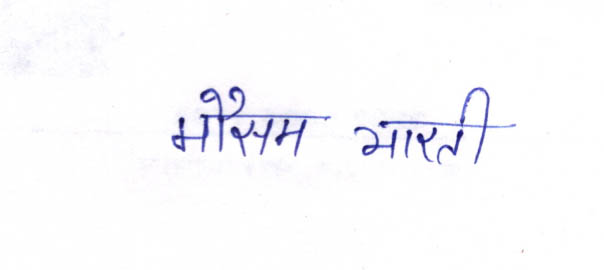 मौसम भारती